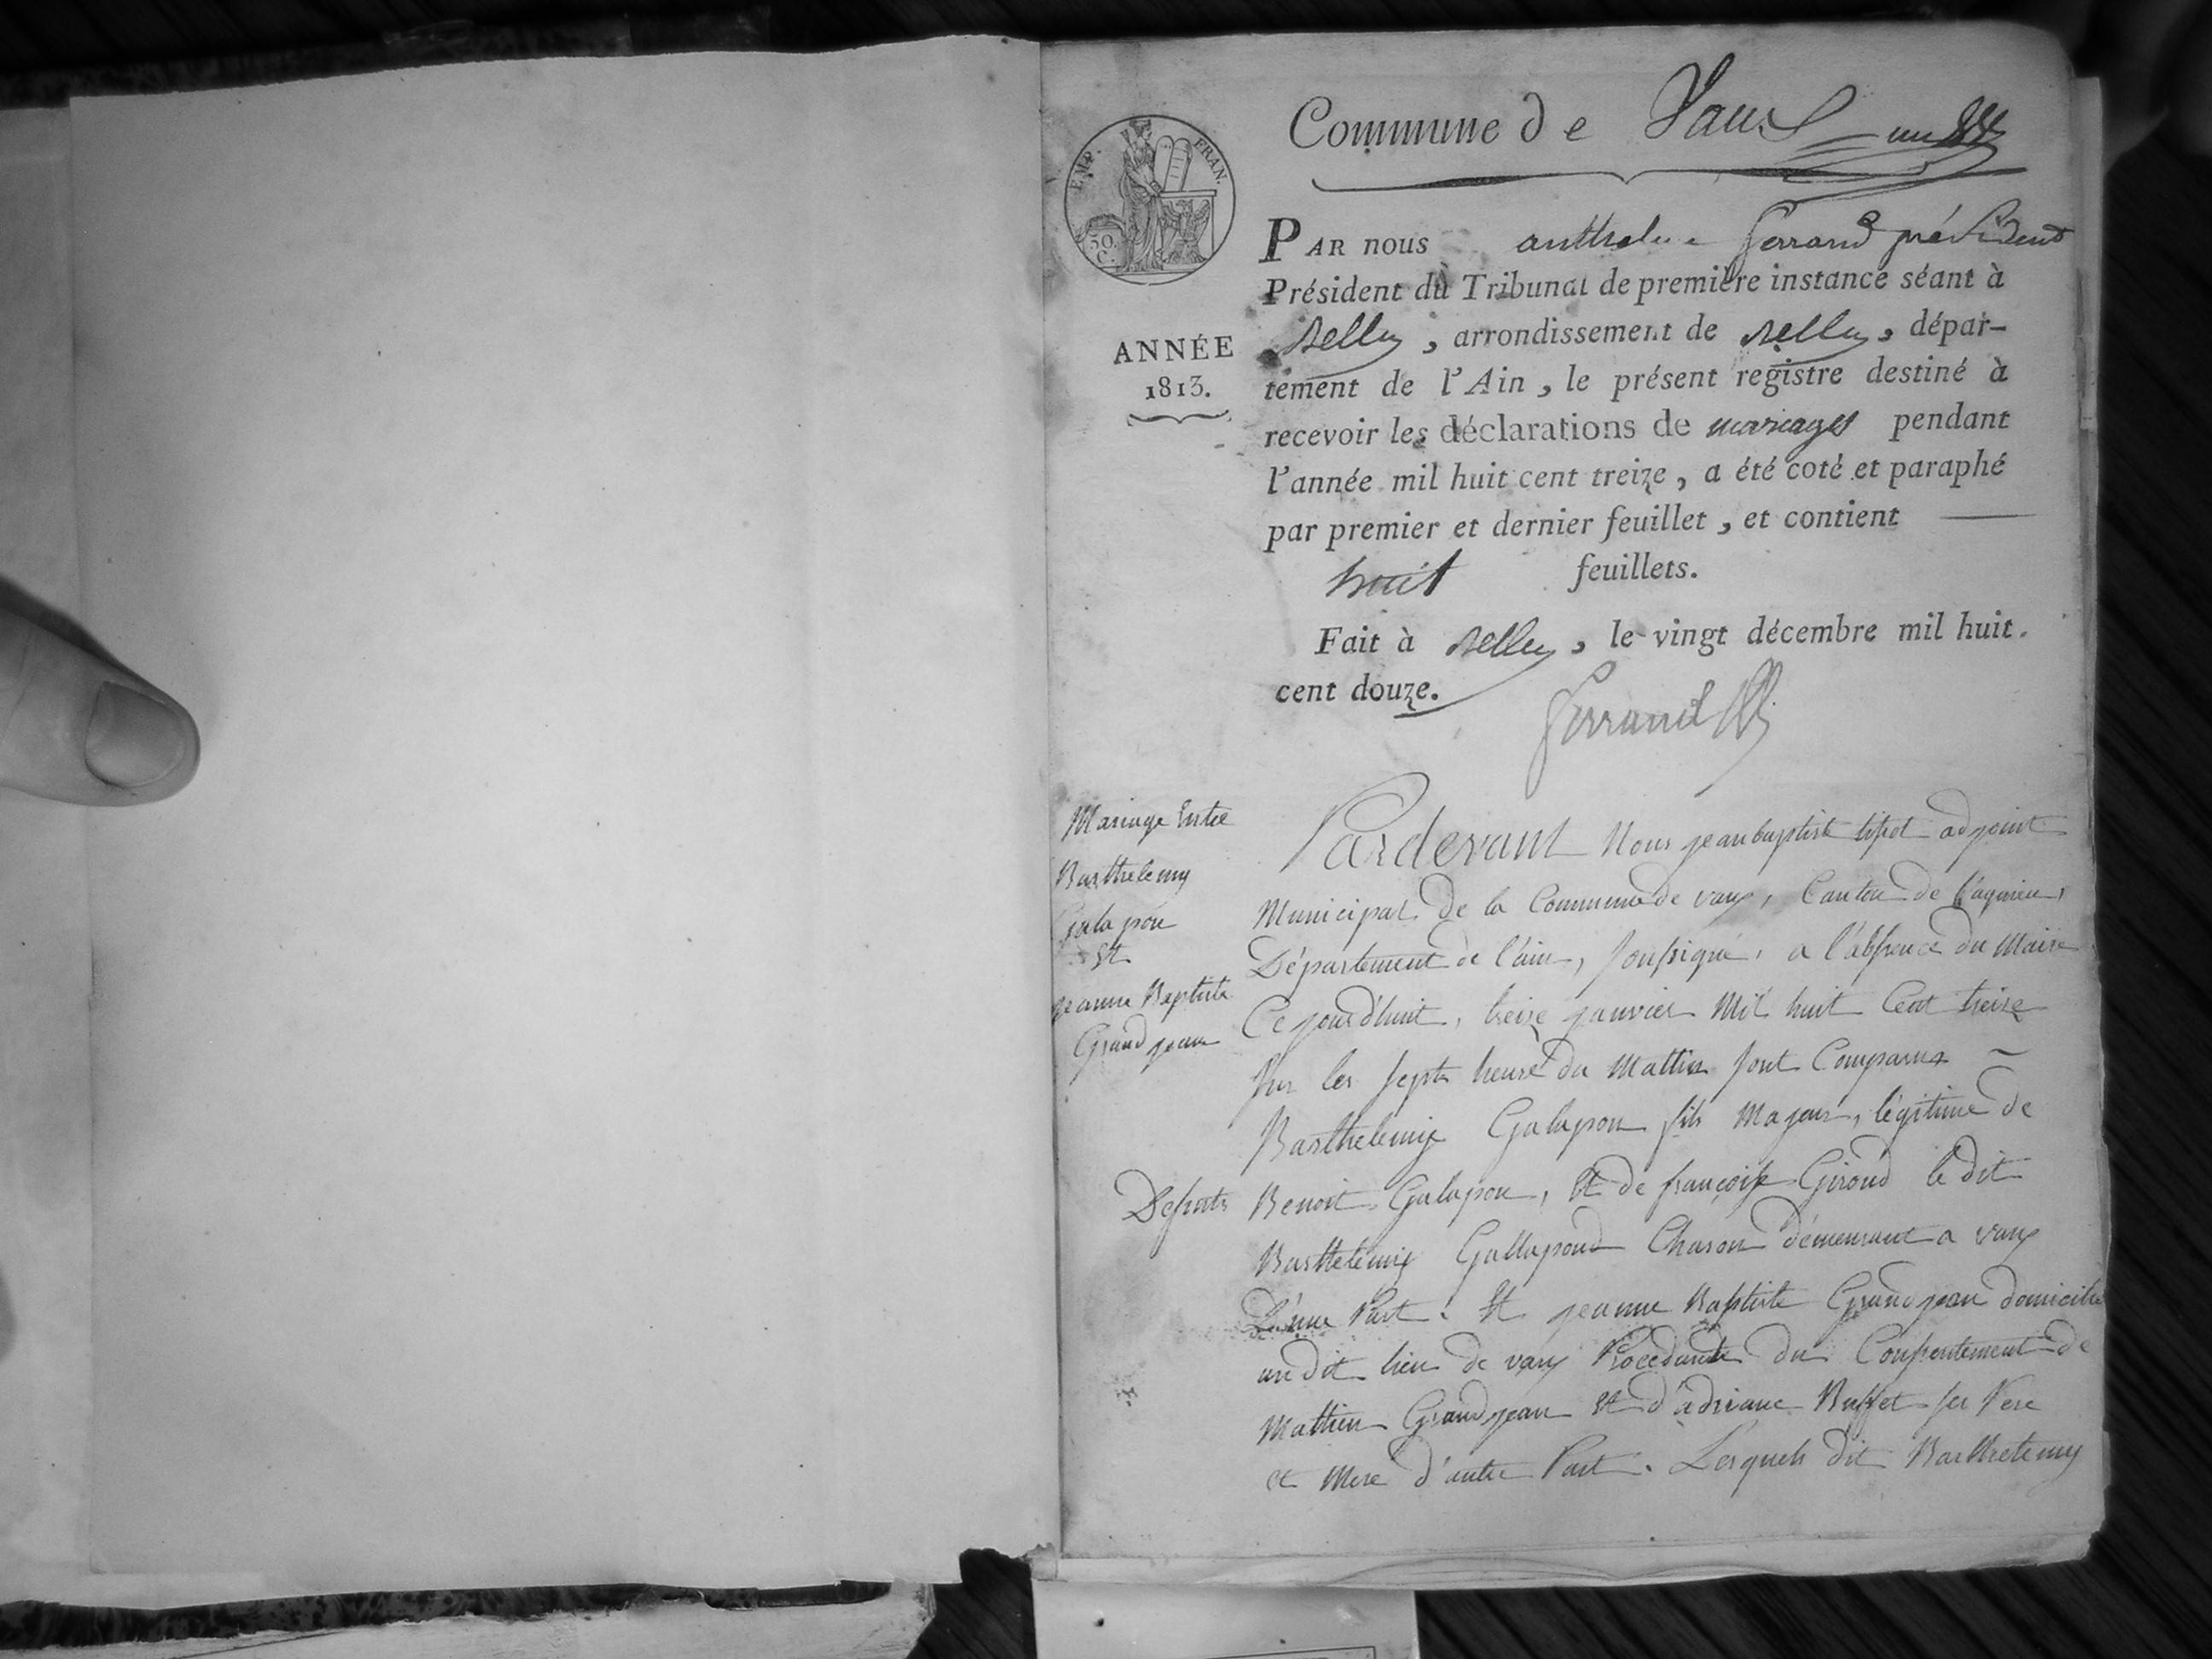 Commune de Vaux un
EMP. FRAN.
30.
C.
ANNÉE
1813.
PAR nous anthelme ferrand président
Président du Tribunal de première instance séant à
Belley, arrondissement de Belley, dépar-
tement de l'Ain, le présent registre destiné à
recevoir les déclarations de mariages pendant
l'année mil huit cent treize, a été coté et paraphé
par premier et dernier feuillet, et contient
huit feuillets.
Fait à Belley, le vingt décembre mil huit
cent douze.
ferrand
Mariage Entre
Barthelemy
Galapon
Et
jeanne Baptiste
Grand jean
Pardevant Nous jean baptiste adjoint
Municipal de la Commune de vaux, Canton de Lagnieu,
Département de l'ain, soussigné, a l'absence du Maire
Ce jourd'huit, treize janvier Mil huit Cent treize
sur les sept heure du Mattin sont Comparus
Barthelemy Galapon fils Majeur, légitime de
Defunts Benoit Galapon, Et de françoise Giroud le dit
Barthelemy Gallapond Charon demeurant a vaux
D'une Part. Et jeanne Baptiste Grand jean domicilié
au dit lieu de vaux Procedante du Consentement de
Mathieu Grand jean Et d'adriane Buffet ses Pere
et Mere d'autre Part. Lesquels dit Barthelemy